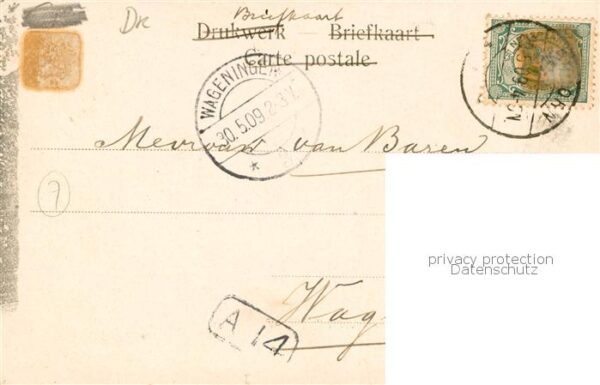 Dr
Briefkaart
Drukwerk — Briefkaart
Carte postale
WAGENINGEN
30.5.09 2-3V.
Mevrouw van Baren
7
privacy protection
Datenschutz
Wag
A 14